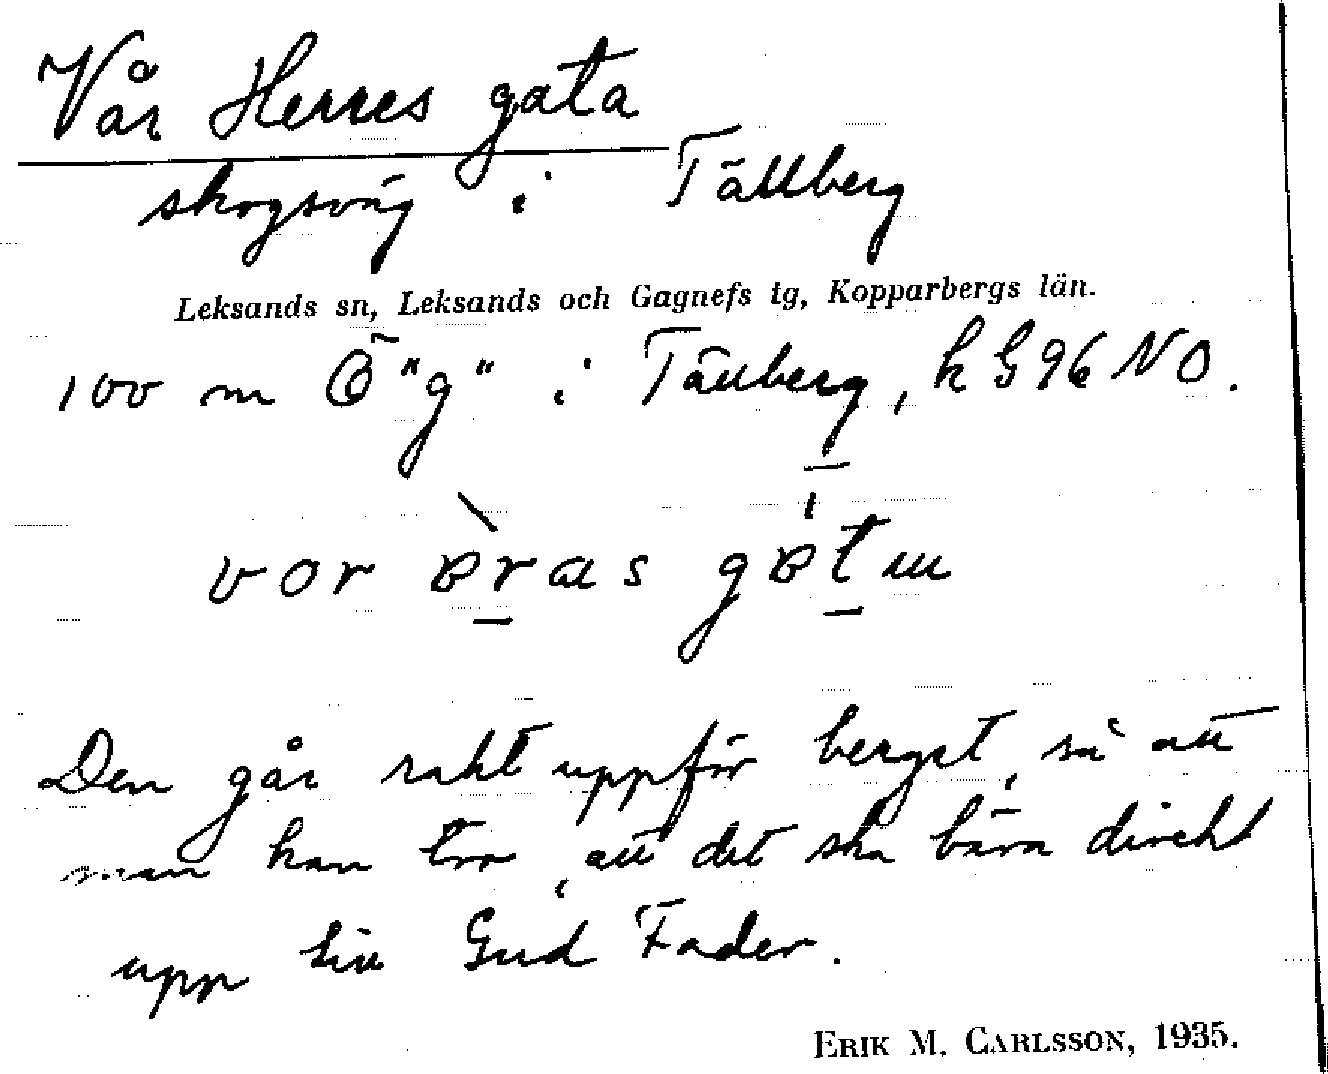 Vår Herres gata
skogsväg i Tällberg
Leksands sn, Leksands och Gagnefs tg, Kopparbergs län.
100 m Ö "g" i Tällberg, k G 96 NO.
vor
Den går rakt uppför berget, så att
man kan tro, att det ska bära direkt
upp till Gud Fader.
ERIK M. CARLSSON, 1935.